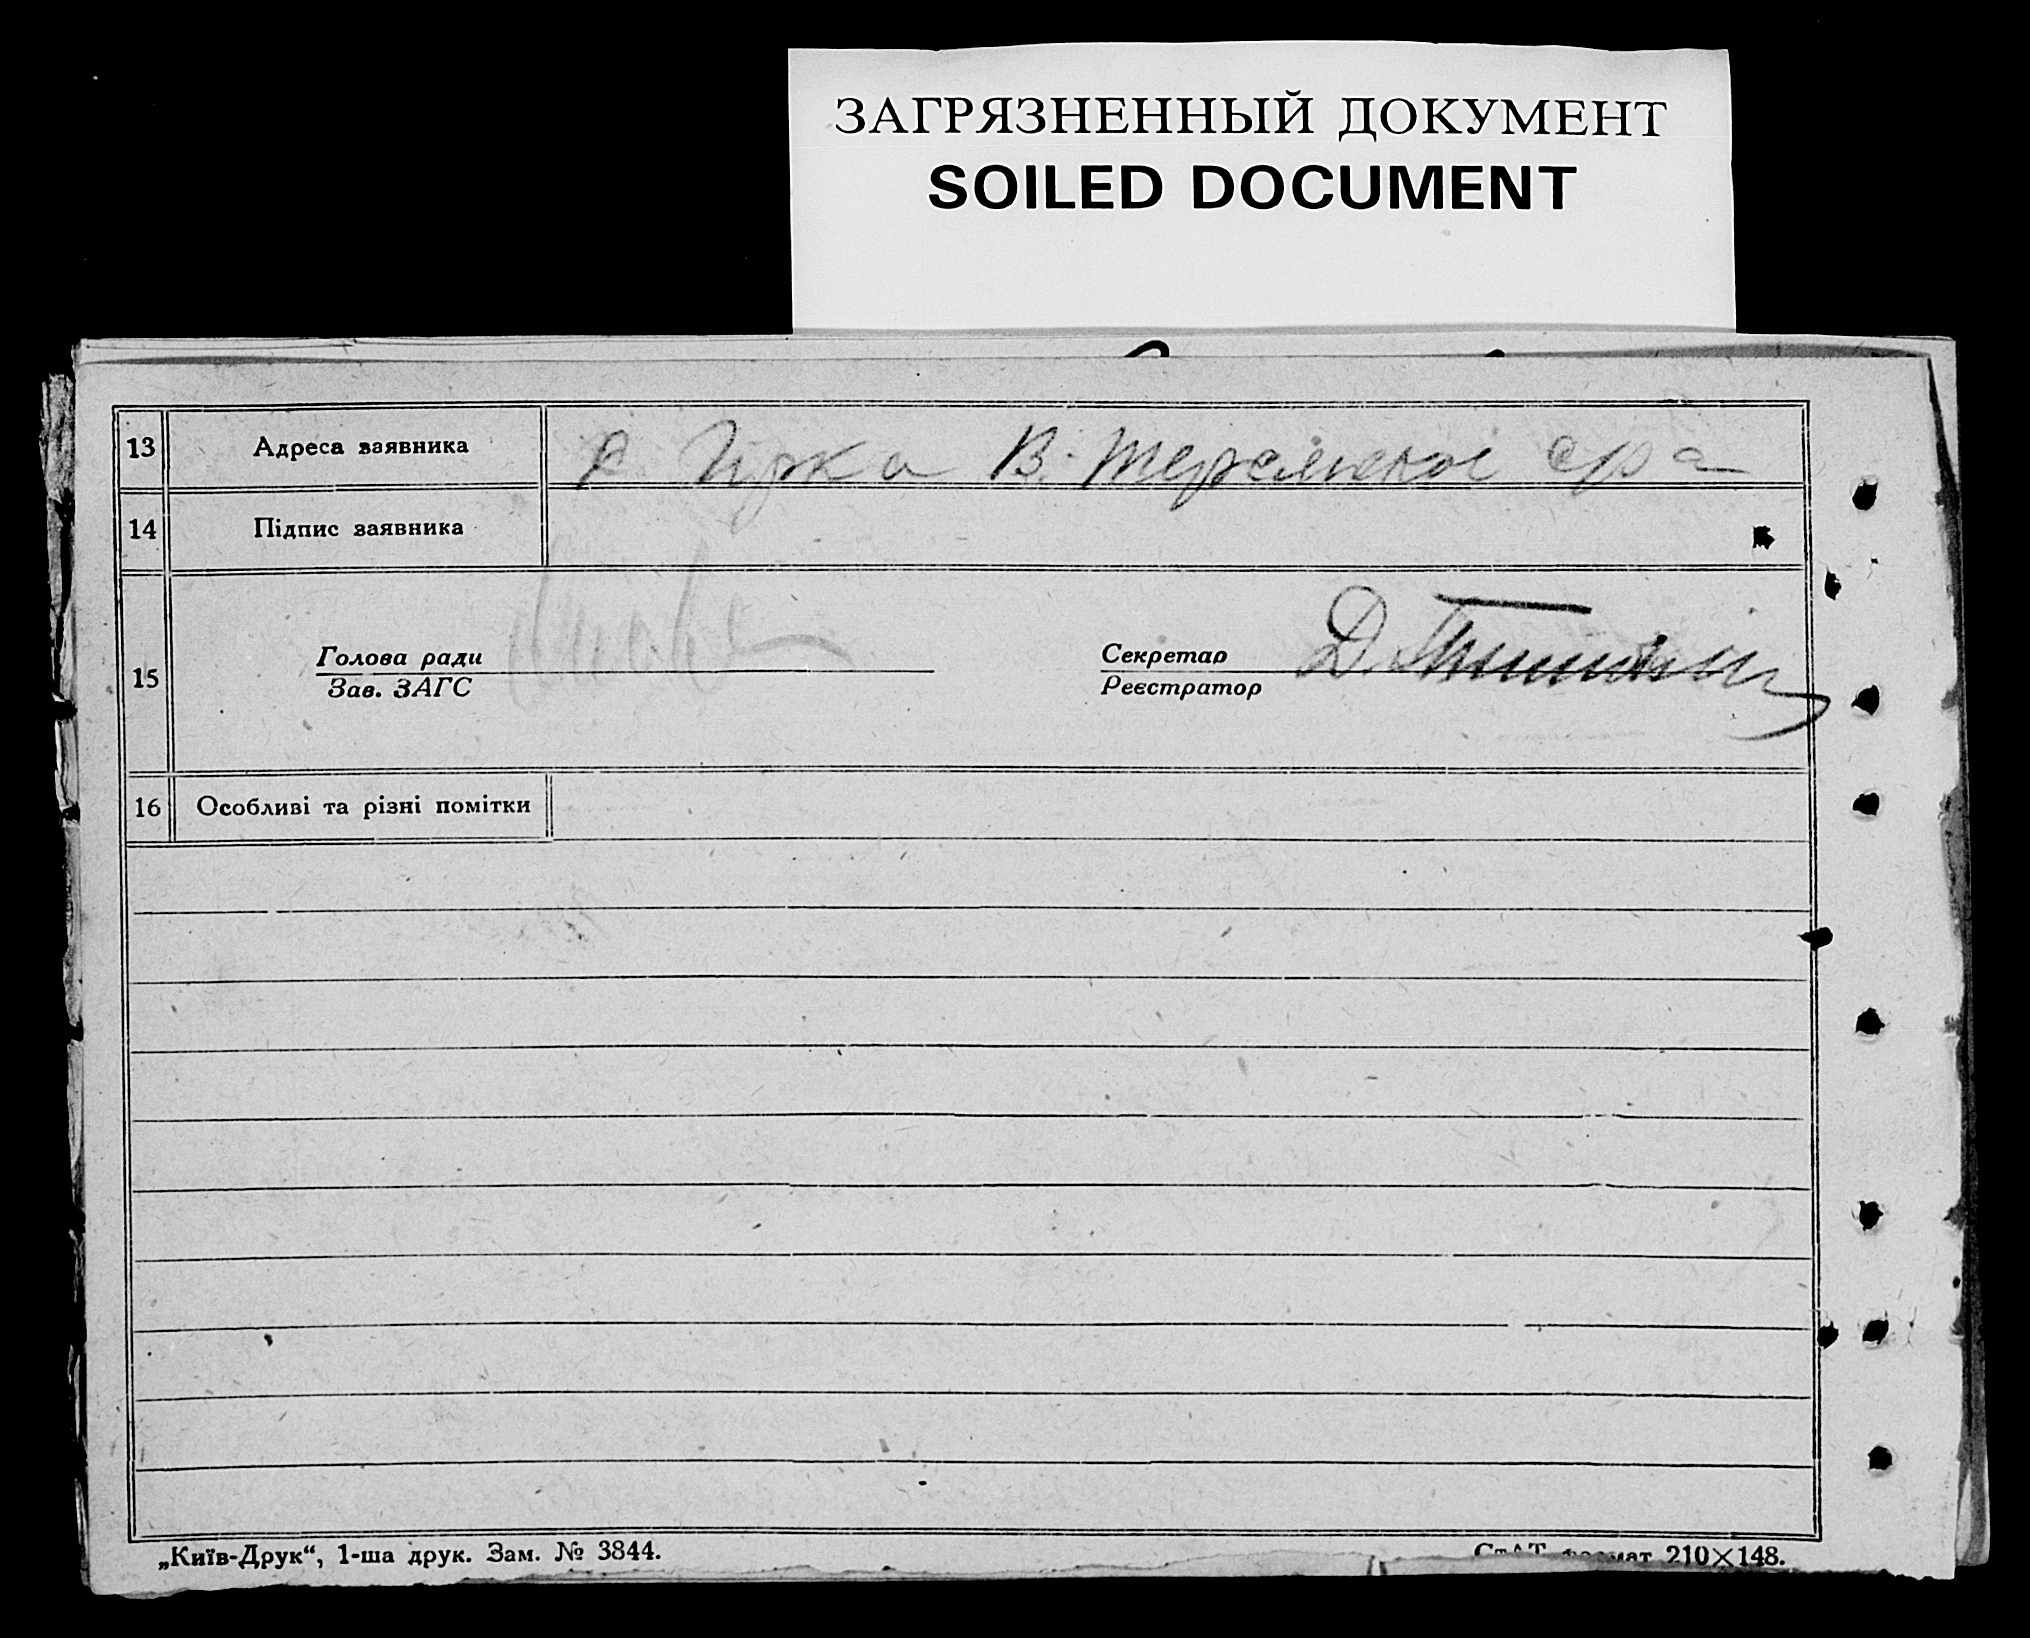 ЗАГРЯЗНЕННЫЙ ДОКУМЕНТ
SOILED DOCUMENT
13 Адреса заявника В.
14 Підпис заявника
15 Голова ради Секретар Д.
Зав. ЗАГС Реєстратор
16 Особливі та різні помітки
„Київ-Друк“, 1-ша друк. Зам. № 3844. 210×148.